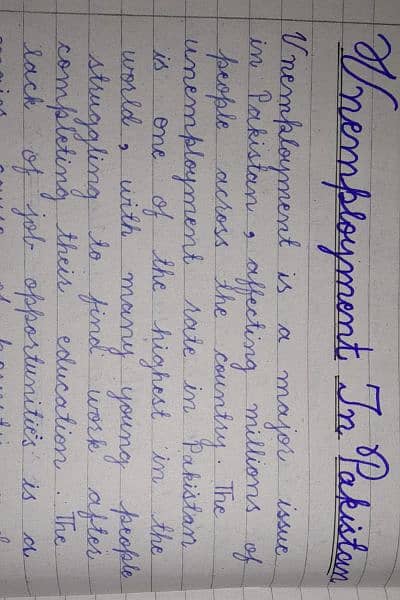 Unemployment In Pakistan
Unemployment is a major issue
in Pakistan, affecting millions of
people across the country. The
unemployment rate in Pakistan
is one of the highest in the
world, with many young people
struggling to find work after
completing their education. The
lack of job opportunities is a